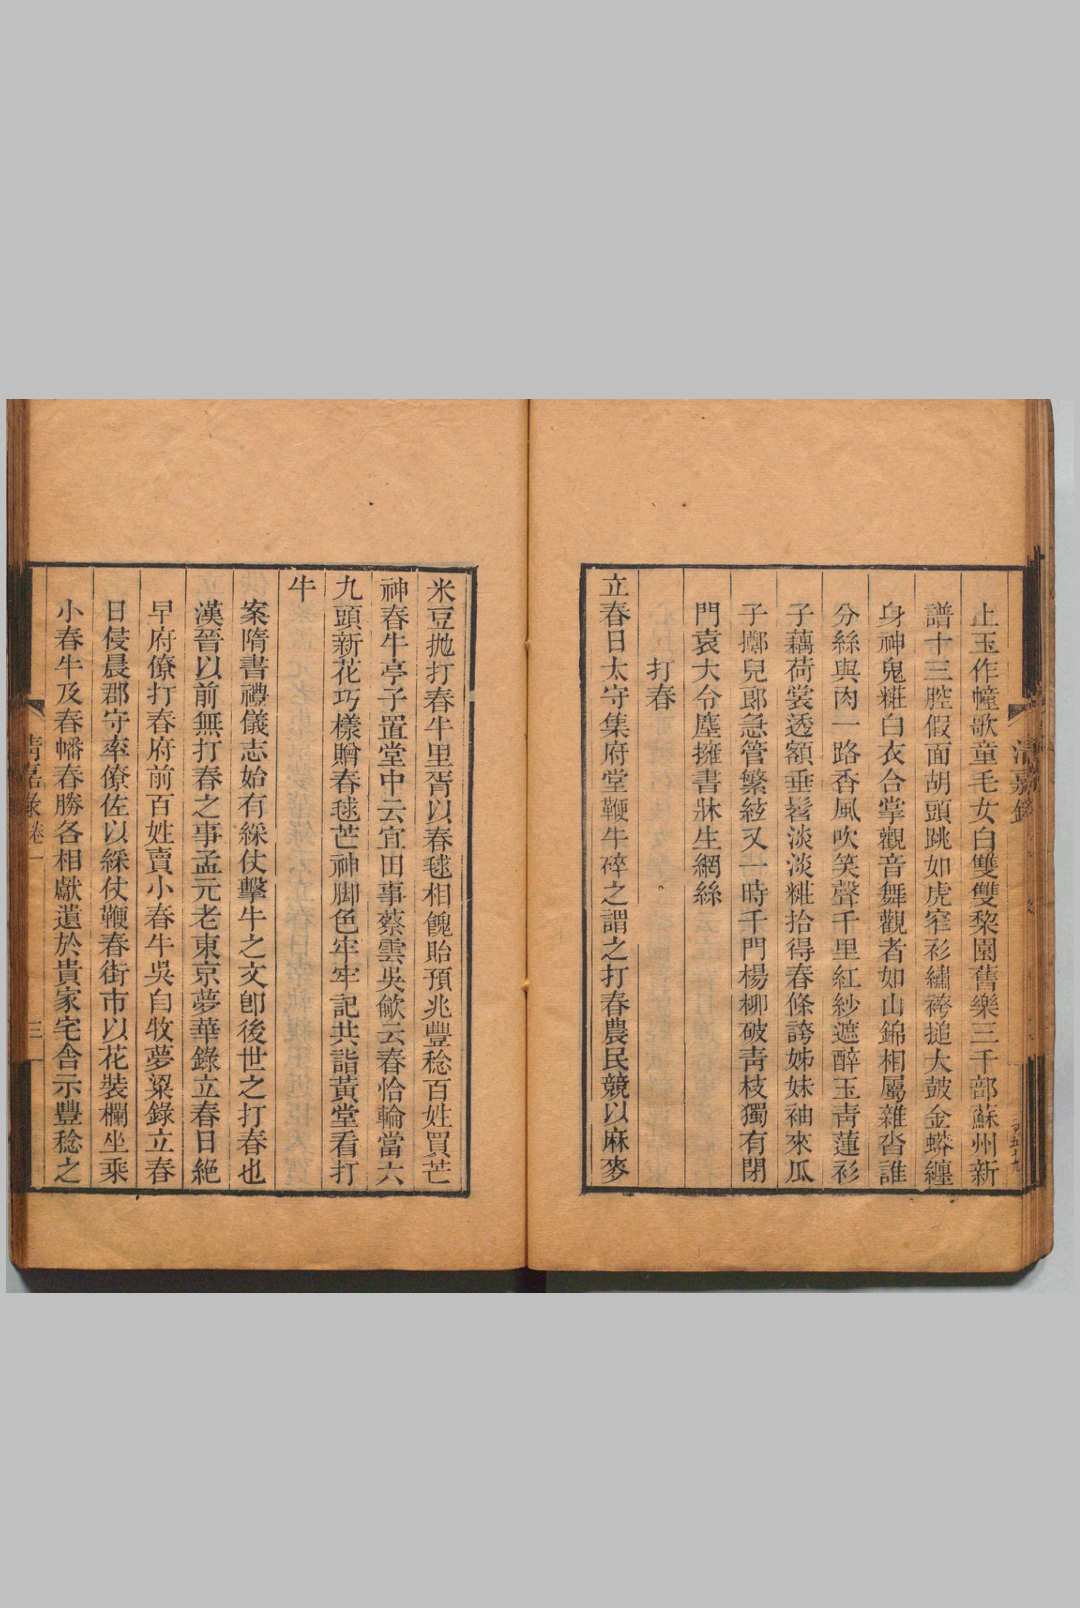 清嘉錄
止玉作幢歌童毛女白雙雙棃園舊樂三千部蘇州新
譜十三腔假面胡頭跳如虎窄衫繡袴搥大鼓金蟒纏
身神鬼糚白衣合掌觀音舞觀者如山錦相屬雜沓誰
分絲與肉一路香風吹笑聲千里紅紗遮醉玉靑蓮衫
子藕荷裳透額垂髫淡淡糚拾得春條誇姊妹袖來瓜
子擲兒郞急管繁絃又一時千門楊柳破靑枝獨有閉
門袁大令塵擁書牀生網絲
打春
立春日太守集府堂鞭牛碎之謂之打春農民競以麻麥
米豆拋打春牛里胥以春毬相餽貽預兆豐稔百姓買芒
神春牛亭子置堂中云宜田事蔡雲吳歈云春恰輪當六
九頭新花巧樣贈春毬芒神脚色牢牢記共詣黃堂看打
牛
案隋書禮儀志始有綵仗擊牛之文卽後世之打春也
漢晉以前無打春之事孟元老東京夢華錄立春日絕
早府僚打春府前百姓賣小春牛吳自牧夢粱錄立春
日侵晨郡守率僚佐以綵仗鞭春街市以花裝欄坐乘
小春牛及春幡春勝各相獻遺於貴家宅舍示豐稔之
淸嘉錄 卷一 三